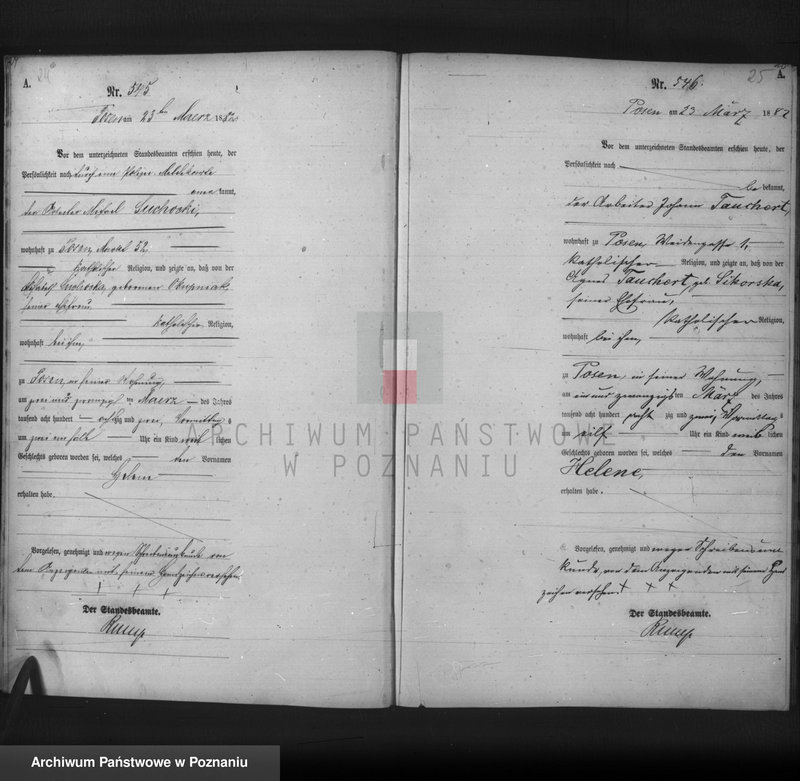 A.
Nr. 545.
Posen am 23ten Maerz 1882
Vor dem unterzeichneten Standesbeamten erschien heute, der
Persönlichkeit nach durch eine Polizei-Meldekarte
kannt,
Suchocki,
wohnhaft zu Posen, Markt 52
katholischer Religion, und zeigte an, daß von der
Suchocka, geborenen
seiner Ehefrau
katholischer Religion,
wohnhaft bei ihm,
zu Posen, in seiner Wohnung,
am zwei und zwanzigsten Maerz des Jahres
tausend acht hundert achtzig und zwei, Vormittags
um Uhr ein Kind lichen
Geschlechts geboren worden sei, welches den Vornamen
Helene
erhalten habe.
Vorgelesen, genehmigt und wegen Schreibensunkunde von
dem Anzeigenden mit seinem Handzeichen versehen.
+ + +
Der Standesbeamte.
25
A.
Nr. 546.
Posen am 23 März 1882
Vor dem unterzeichneten Standesbeamten erschien heute, der
Persönlichkeit nach
be kannt,
der Arbeiter Johann Tauchert,
wohnhaft zu Posen, Weidengasse 1,
katholischer Religion, und zeigte an, daß von der
Agnes Tauchert, geb. Sikorska,
seiner Ehefrau,
katholischer Religion,
wohnhaft bei ihm,
zu Posen, in seiner Wohnung,
am ein und zwanzigsten März des Jahres
tausend acht hundert acht zig und zwei,
um elf Uhr ein Kind weib lichen
Geschlechts geboren worden sei, welches den Vornamen
Helene,
erhalten habe.
Vorgelesen, genehmigt und wegen Schreibensun-
kunde, von dem Anzeigenden mit seinem Hand
zeichen versehen. + + +
Der Standesbeamte.
ARCHIWUM PAŃSTWOWE
W POZNANIU
Archiwum Państwowe w Poznaniu